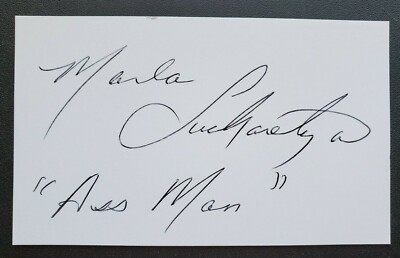 Marla
Sucharetza
"Ass Man"